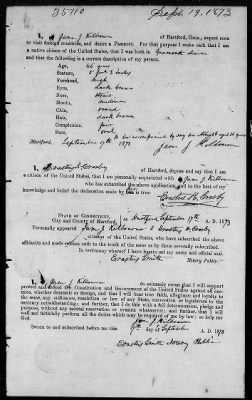 35710
Sept 19, 1873
I, Jane J Kilbourn of Hartford, Conn, expect soon
to visit foreign countries, and desire a Passport. For that purpose I make oath that I am
a native citizen of the United States, that I was born in
and that the following is a correct description of my person.
Age, 46 yrs
Stature, 5 feet 3 inches
Forehead, high
Eyes, dark brown
Nose,
Mouth, medium
Chin, round
Hair, dark brown
Complexion, fair
Face, oval
to be accompanied by my son
Hartford September 17th 1873
I, Erastus H. Crosby of Hartford, depose and say that I am
a citizen of the United States, that I am personally acquainted with Jane J Kilbourn
who has subscribed the above application, and to the best of my
knowledge and belief the declaration made by is true.
Erastus H. Crosby
STATE OF CONNECTICUT,
City and County of Hartford, ss. Hartford September 17th A. D. 1873
Personally appeared Jane J Kilbourn & Erastus H Crosby
citizens of the United States, who subscribed the above
affidavits and made solemn oath to the truth of the same as by them severally subscribed.
In testimony whereof I have hereto set my name and official seal.
Erastus Smith
Notary Public.
I, Jane J Kilbourn do solemnly swear that I will support
protect and defend the Constitution and Government of the United States against all enemies,
whether domestic or foreign, and that I will bear true faith, allegiance and loyalty to
the same, any ordinance, resolution or law of any State, convention or legislature to the
contrary notwithstanding; and further, that I do this with a full determination, pledge and
purpose, without any mental reservation or evasion whatsoever; and further, that I will
well and faithfully perform all the duties which may be required of me by law; so help me
God.
Jane J Kilbourn
Sworn to and subscribed before me this 17th day of September A. D. 1873
Erastus Smith Notary Public